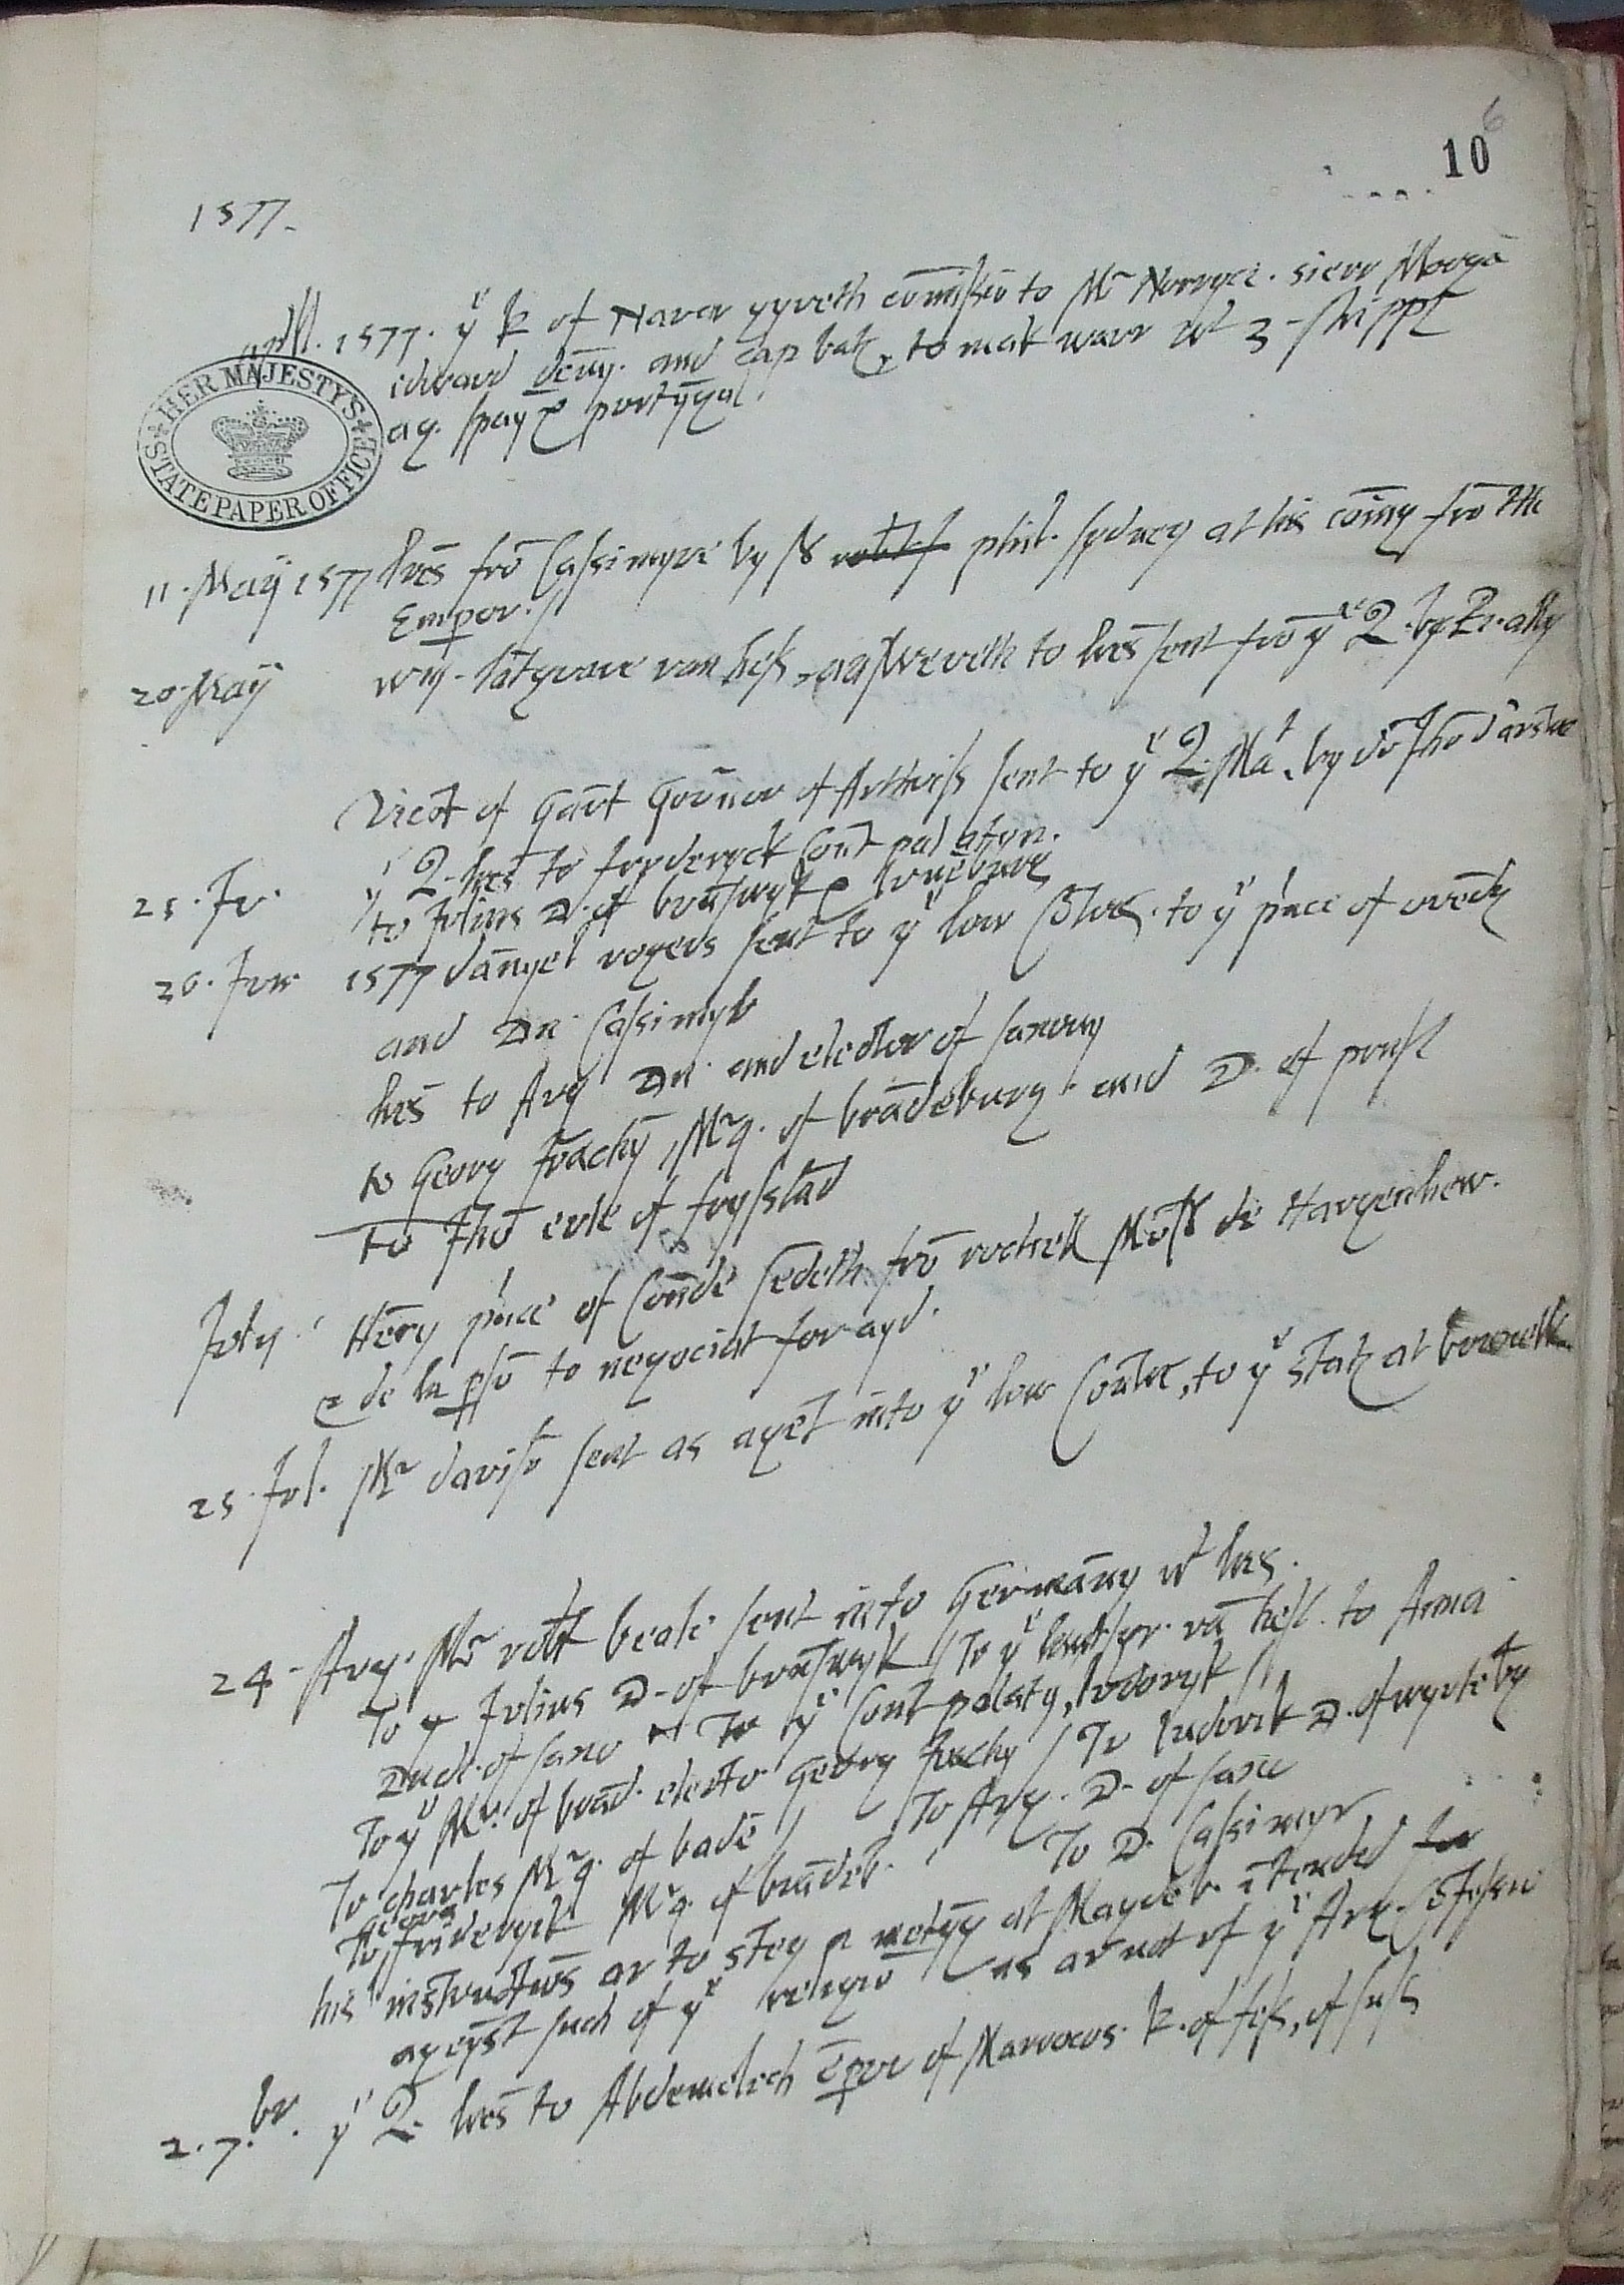 6
10
1577.
apll. 1577. yᵉ k of Navar gyveth comissio to Mr Norryce. sieur Morga
edward deny. and cap bak, to mak warr wᵗ 3 shipps
ag. spay & portygal.
HER MAJESTY'S STATE PAPER OFFICE
11. May 1577 lres fro Cassimyre by Sr phil. sydney at his comyng fro the
Emperor.
20. May wm. latgrave van hess answereth to lres sent fro yᵉ Q. by
Vicot of Gant Governor of Arthois sent to yᵉ Q. Maᵗ. by
25. Ju. yᵉ Q. lres to fryderyck Cont palatyn.
to Julius D. of brunswyk & luneburg
26. Jun 1577 danyel rogers sent to yᵉ low Cotres. to yᵉ prince of
and Du Cassimyr
lres to Aug Du. and elector of saxony
to Georg fredrich Mrq. of bradeburg and D. of prusse
to Jho erle of
July. Hery prince of Conde sedeth fro rochell Mosr de Hargenliew.
& de la perso to negociat for ayd.
25. Jul. Mr daviso sent as aget into yᵉ low Contres, to yᵉ stats at
24. Aug. Mr robt beale sent into Germany wᵗ lres.
To Julius D. of brunswyk / To yᵉ van hess. to Anna
Duch. of saxo To yᵉ Cont palaty, lodovyk /
To yᵉ Mr. of brad. elector Georg / To ludovik D. of
To charles Mrq. of bade / To Aug. D. of saxe
Georg
To friderych Mrq. of bradeb. To D. Cassimyr
his instructios ar to stey a metyg at Maydeb. iteded for
ageyst such of yᵉ religio as ar not of yᵉ Aug. Cofessio
2. 7.br. yᵉ Q. lres to Abdemelech Eperor of Marrocus. k. of fess, of suss